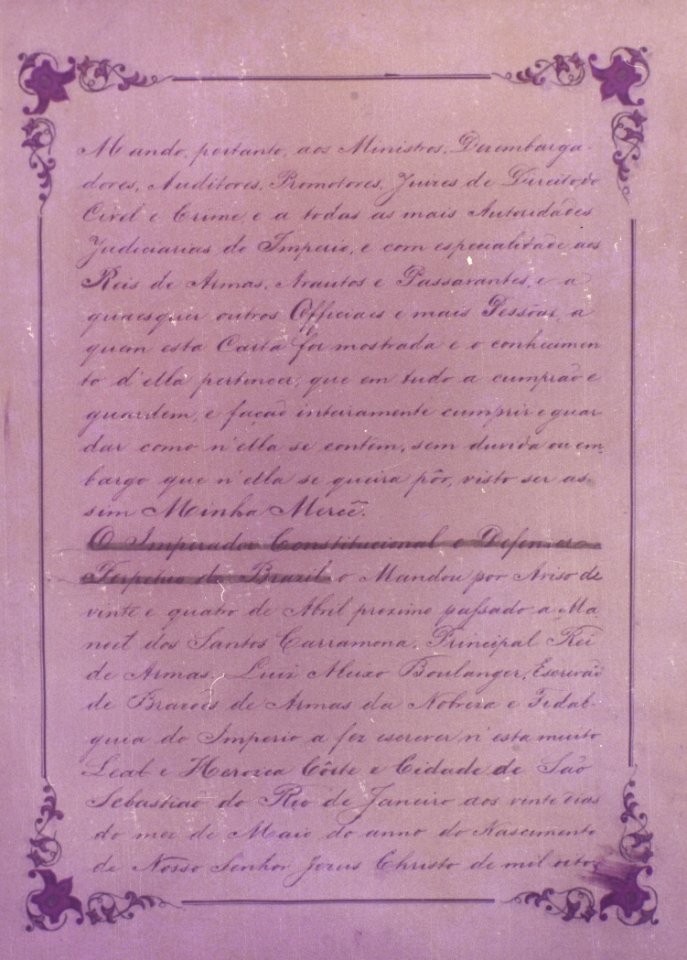 Mando, portanto, aos Ministros, Dezembarga-
dores, Auditores, Promotores, Juizes de Direito do
Civel e Crime e a todas as mais Autoridades
Judiciarias do Imperio, e com especialidade aos
Reis de Armas, Arautos e Passavantes, e a
quaesquer outros Officiaes e mais Pessôas, a
quem esta Carta for mostrada e o conhecimen
to d'ella pertencer, que em tudo a cumprão e
guardem, e fação inteiramente cumprir e guar
dar como n'ella se contém, sem duvida ou em-
bargo que n'ella se queira pôr, visto ser as-
sim Minha Mercê.
O Imperador Constitucional e Defensor
Perpétuo do Brazil o Mandou por Aviso de
vinte e quatro de Abril proximo passado a Ma
noel dos Santos Carramona, Principal Rei
de Armas, Luiz Aleixo Boulanger, Escrivão
de Brazões de Armas da Nobreza e Fidal-
guia do Imperio a fez escrever n'esta muito
Leal e Heroica Côrte e Cidade de São
Sebastião do Rio de Janeiro aos vinte dias
do mez de Maio do anno do Nascimento
de Nosso Senhor Jezus Christo de mil oito-